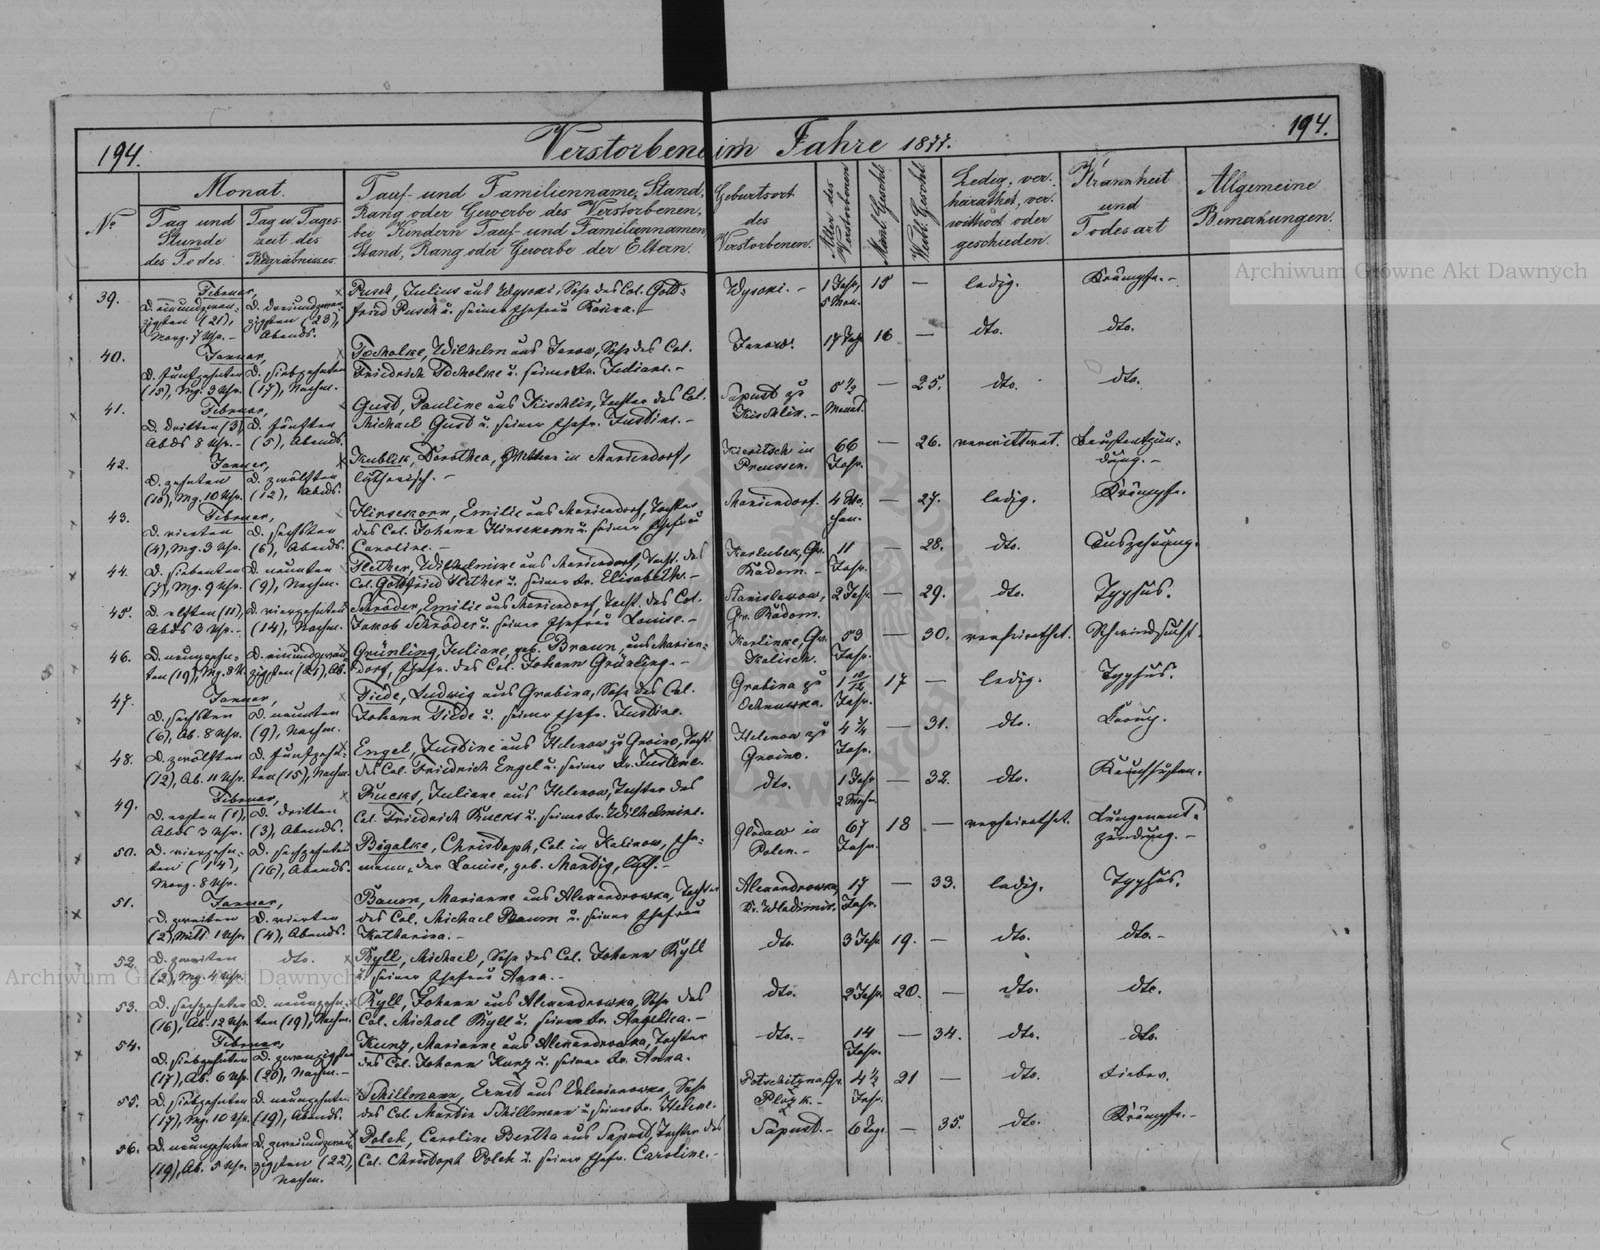 194.
Verstorbene im Jahre 1877.
194.
Nr.
Monat.
Tag und Stunde des Todes
Tag u. Tageszeit des Begräbnisses
Tauf- und Familienname, Stand,
Rang oder Gewerbe des Verstorbenen,
bei Kindern Tauf- und Familiennamen
Stand, Rang oder Gewerbe der Eltern.
Geburtsort
des
Verstorbenen.
Alter des Verstorbenen
Männl. Geschl.
Weibl. Geschl.
Ledig, ver-
harathet, ver-
wittwet oder
geschieden.
Krannheit
und
Todesart
Allgemeine
Bemerkungen.
39. Februar, Pusch, Julius aus Wysoki, Sohn des Col. Gott-
D. einundzwan- D. dreiundzwan- fried Pusch u. seiner Ehefrau Rosina.
zigsten (21), zigsten (23),
Morg. 7 Uhr. Abends.
Wysoki. 1 Jahr, 5 Mon. 15 — ledig. Krämpfe.
40. Januar, Wilhelm aus Janow, Sohn des Col.
D. fünfzehnten D. siebzehnten Friedrich u. seiner Fr. Juliane.
(15), Mg. 3 Uhr. (17), Nachm.
Janow. 17 16 — dto. dto.
41. Februar, Gust, Pauline aus Kischlin, Tochter des Col.
D. dritten (3) D. fünften Michael Gust u. seiner Ehefr. Justine.
Abds 8 Uhr. (5), Abends.
Sapust zu Kischlin. 5 1/2 Monat. — 25. dto. dto.
42. Januar, Kublik, Dorothea, in Mariendorf,
D. zehnten D. zwölften lutherisch.
(10), Mg. 10 Uhr. (12), Abds.
in Preussen. 66 Jahr. — 26. verwittwet.
43. Februar, Hirsekorn, Emilie aus Mariendorf, Tochter
D. vierten D. sechsten des Col. Johann Hirsekorn u. seiner Ehefrau
(4), Mg. 3 Uhr. (6), Abends. Caroline.
Mariendorf. 4 — 27. ledig. Krämpfe.
44. D. siebenten D. neunten Wilhelmine aus Mariendorf, Tocht. des
(7), Mg. 9 Uhr. (9), Nachm. Col. Gottfried u. seiner Fr. Elisabeth.
Gv. Radom. 11 Jahr. — 28. dto. Auszehrung.
45. D. elften (11), D. vierzehnten Schröder, Emilie aus Mariendorf, Tocht. des Col.
Abds 3 Uhr. (14), Nachm. Jakob Schröder u. seiner Ehefrau Louise.
Stanislawow, Gv. Radom. 2 Jahr — 29. dto. Typhus.
46. D. neunzehn- D. einundzwan- Grünling, Juliane, geb. Braun, aus Marien-
ten (19), Mg. 8 U. zigsten (21), Ab. dorf, Ehefr. des Col. Johann Grünling.
Karlinke, Gv. Kalisch. 53 Jahr. — 30. verheirathet. Schwindsucht.
47. Januar, Tiede, Ludwig aus Grabina, Sohn des Col.
D. sechsten D. neunten Johann Tiede u. seiner Ehefr. Justine.
(6), Ab. 8 Uhr. (9), Nachm.
Grabina zu 1 10/12 Jahr. 17 — ledig. Typhus.
48. D. zwölften D. fünfzehn- Engel, Justine aus Helenow zu Tocht.
(12), Ab. 11 Uhr. ten (15), Nachm. des Col. Friedrich Engel u. seiner Fr. Justine.
Helenow zu 4 3/4 Jahr. — 31. dto. Croup.
49. Februar, Rucks, Juliane aus Helenow, Tochter des
D. ersten (1), D. dritten Col. Friedrich Rucks u. seiner Fr. Wilhelmine.
Abds 3 Uhr. (3), Abends.
dto. 1 Jahr — 32. dto. Keuchhusten.
50. D. vierzehn- D. sechzehnten Bigalke, Christoph, Col. in Kalinow, Ehe-
ten (14), (16), Abends. mann der Louise, geb. luth.
Morg. 8 Uhr.
in Polen. 67 Jahr. 18 — verheirathet. Lungenent-
zündung.
51. Januar, Baum, Marianne aus Alexandrowka, Tochter
D. zweiten D. vierten des Col. Michael Baum u. seiner Ehefrau
(2), Mitt. 1 Uhr. (4), Abends. Katharina.
Alexandrowka, Kr. Wladimir. 17 Jahr. — 33. ledig. Typhus.
52. D. zweiten dto. Ryll, Michael, Sohn des Col. Johann Ryll
(2), Mg. 4 Uhr. u. seiner Ehefrau Anna.
dto. 3 Jahr 19. — dto. dto.
53. D. sechzehnten D. neunzehn- Ryll, Johann aus Alexandrowka, Sohn des
(16), Ab. 12 Uhr. ten (19), Nachm. Col. Michael Ryll u. seiner Fr. Angelica.
dto. 2 Jahr. 20. — dto. dto.
54. Februar, Kunz, Marianne aus Alexandrowka, Tochter
D. siebzehnten D. zwanzigsten des Col. Johann Kunz u. seiner Fr. Anna.
(17), Ab. 6 Uhr. (20), Nachm.
dto. 14 Jahr. — 34. dto. dto.
55. D. siebzehnten D. neunzehnten Schillmann, Ernst aus Sohn
(17), Mg. 10 Uhr. (19), Abends. des Col. Martin Schillmann u. seiner Fr. Helene.
Gv. Plozk. 4 1/2 Jahr. 21 — dto. Fieber.
56. D. neunzehnten D. zweiundzwan- Polek, Caroline Bertta aus Sapust, Tochter des
(19), Ab. 5 Uhr. zigsten (22), Col. Christoph Polek u. seiner Ehefr. Caroline.
Nachm.
Sapust. 6 Tage. — 35. dto. Krämpfe.
Archiwum Główne Akt Dawnych
Archiwum Główne Akt Dawnych